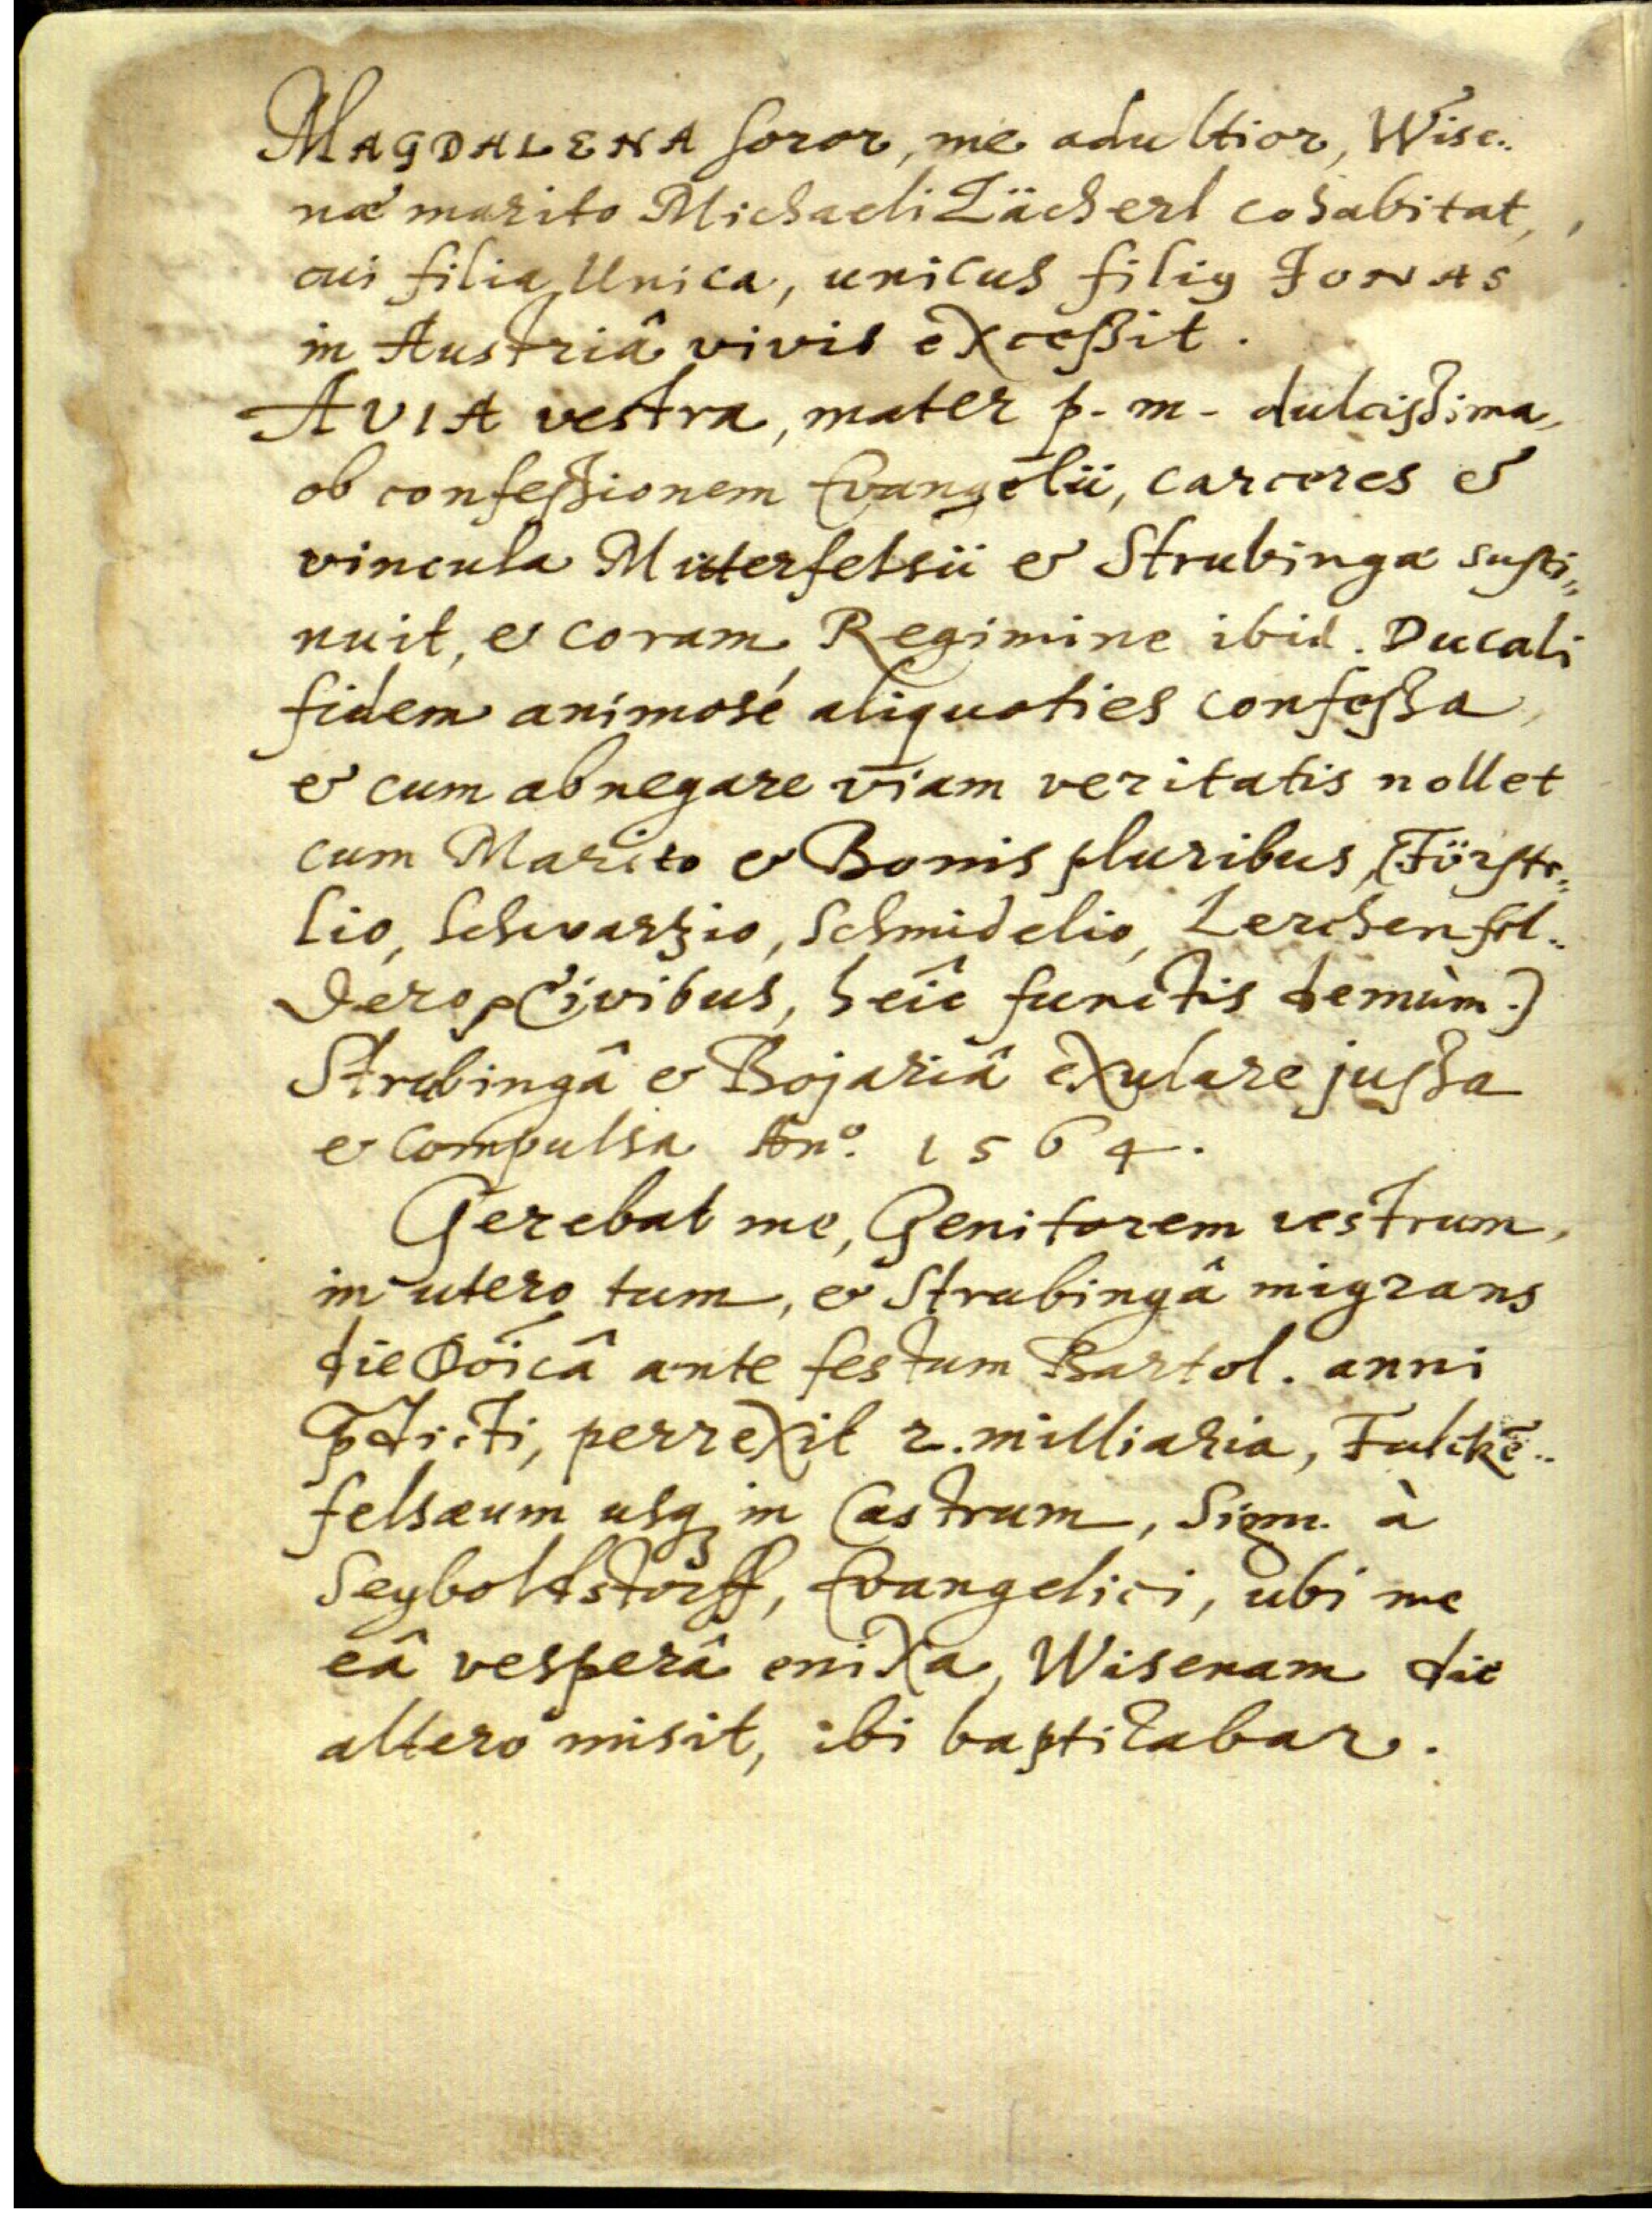 MAGDALENA soror, me adultior, Wise..
næ marito Michaeli Zächerl cohabitat,
cui filia Unica, unicus filiꝰ JONAS
in Austriâ vivis exceßit.
AVIA vestra, mater p. m. dulcißima,
ob confeßionem Evangelii, carceres &
vincula Mitterfelsii & Strubingæ susti=
nuit, & coram Regimine ibid. Ducali
fidem animosé aliquoties confeßa,
& cum abnegare viam veritatis nollet
cum Marito & Bonis pluribus, (Förste=
lio, Schwarzio, Schmidelio, Lerchenfel..
dero, Civibus, heîc functis demùm.)
Strubingâ & Bojariâ exulare jußa
& compulsa Anº. 1564.
Gerebat me, Genitorem vestrum,
in utero tum, & Strubingâ migrans
die Dōicâ ante festum Bartol. anni
p̄dicti, perrexit 2. milliaria, Falckē..
felsæum usqꝫ in Castrum, Sigm. à
Seyboltstorff, Evangelici, ubi me
eâ vesperâ enixa, Wisenam die
altero misit, ibi baptizabar.